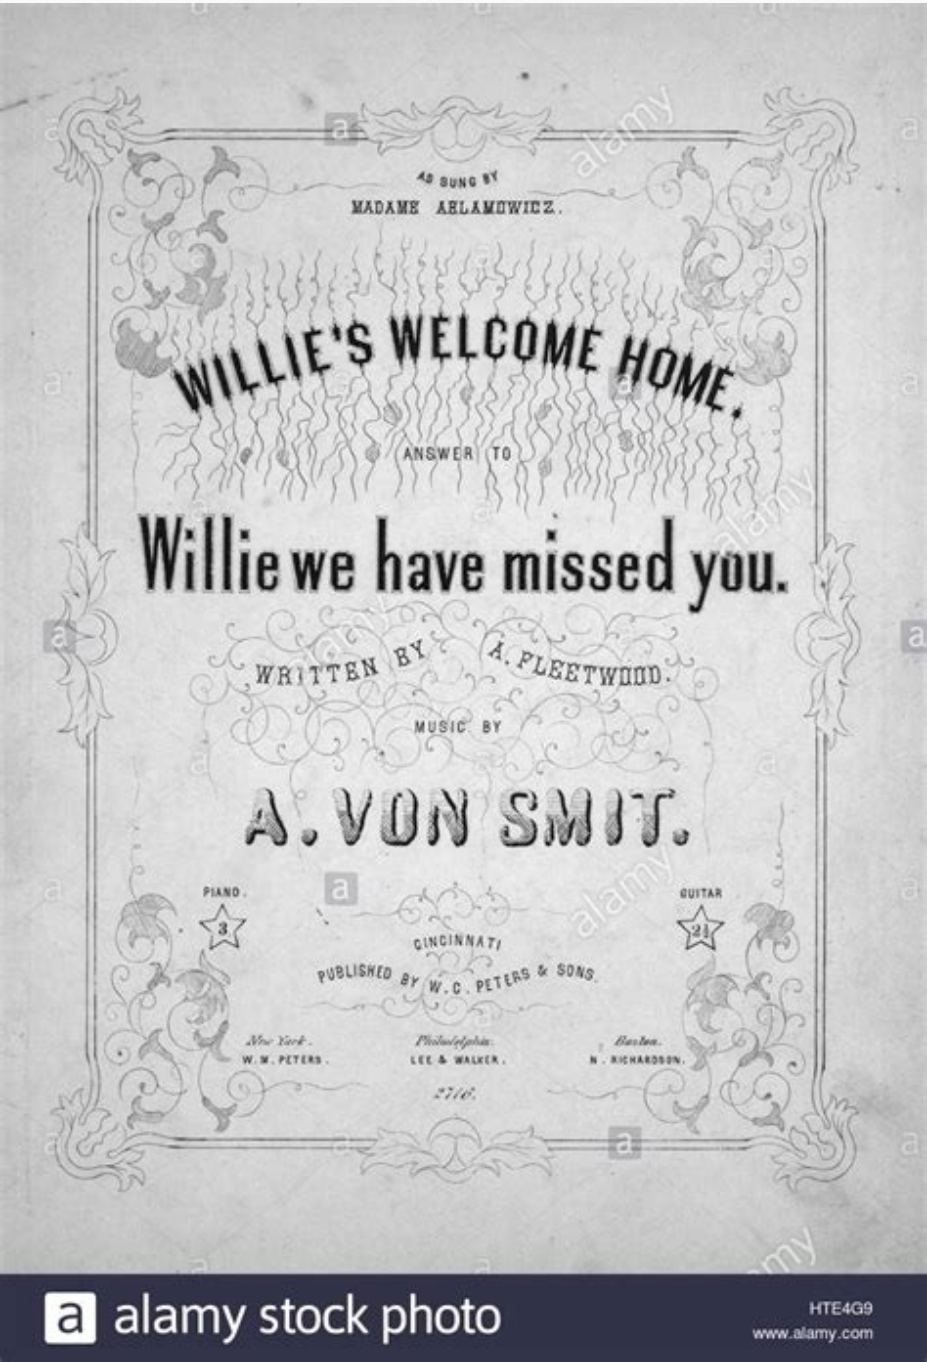 AS SUNG BY
MADAME ABLAMOWICZ.
WILLIE'S WELCOME HOME.
ANSWER TO
Willie we have missed you.
WRITTEN BY A. FLEETWOOD.
MUSIC BY
A. VON SMIT.
PIANO. GUITAR
3 2½
CINCINNATI
PUBLISHED BY W. C. PETERS & SONS.
New York. Philadelphia. Boston.
W. M. PETERS. LEE & WALKER. N. RICHARDSON.
2716.
a alamy stock photo
HTE4G9
www.alamy.com